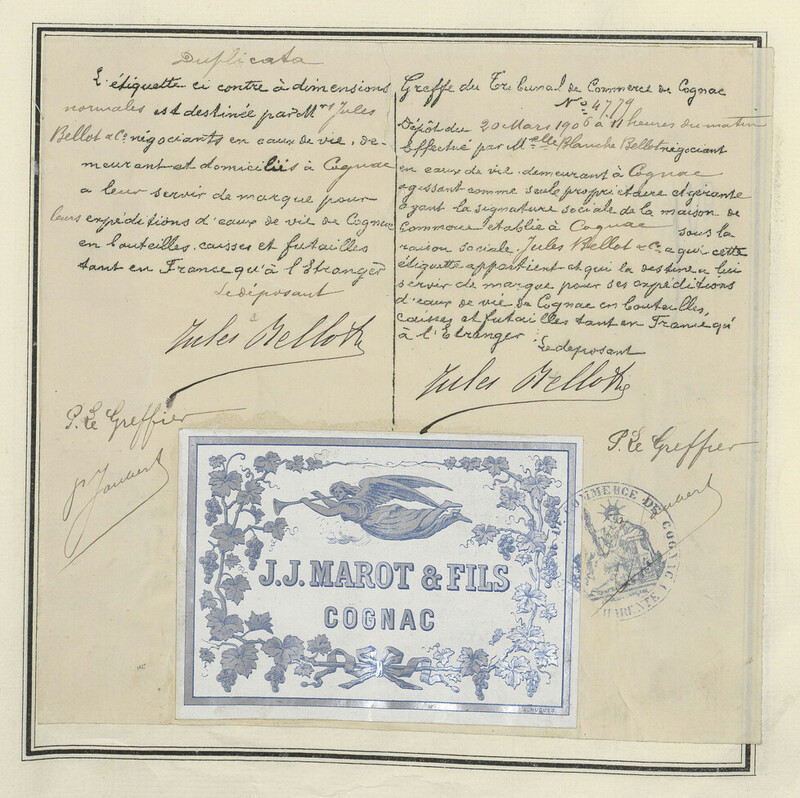 Duplicata
L'étiquette ci contre à dimensions
normales est destinée par Mrs Jules
Bellot & Co négociants en eaux de vie, de-
meurant et domiciliés à Cognac
a leur servir de marque pour
leurs expéditions d'eaux de vie de Cognac
en bouteilles, caisses et futailles
tant en France qu'à l'Etranger
Le déposant
Jules Bellot & Co
P. Le Greffier
P. Joubert
Greffe du Tribunal de Commerce de Cognac
No 4779
Dépôt du 20 Mars 1906 à 11 heures du matin
Effectué par Melle Blanche Bellot négociant
en eaux de vie demeurant à Cognac
agissant comme seule propriétaire et gérante
ayant la signature sociale de la maison de
Commerce établie à Cognac sous la
raison sociale Jules Bellot & Co a qui cette
étiquette appartient et qui la destine a lui
servir de marque pour ses expéditions
d'eaux de vie de Cognac en bouteilles,
caisses et futailles tant en France qu'
à l'Etranger.
Le déposant
Jules Bellot & Co
P. Le Greffier
Joubert
COMMERCE DE COGNAC
CHARENTE
J.J. MAROT & FILS
COGNAC